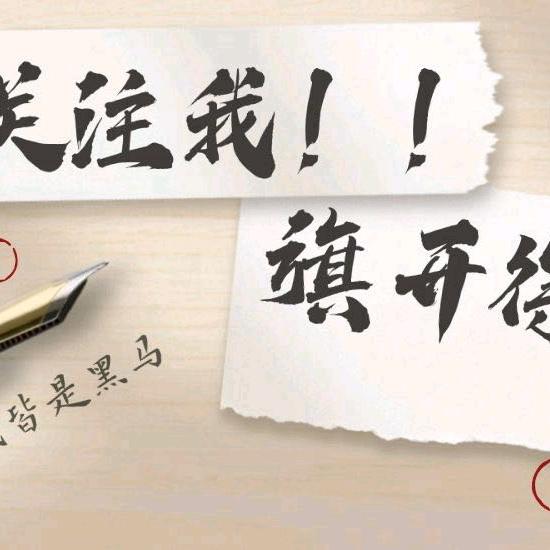 关注我！！
旗开得
皆是黑马